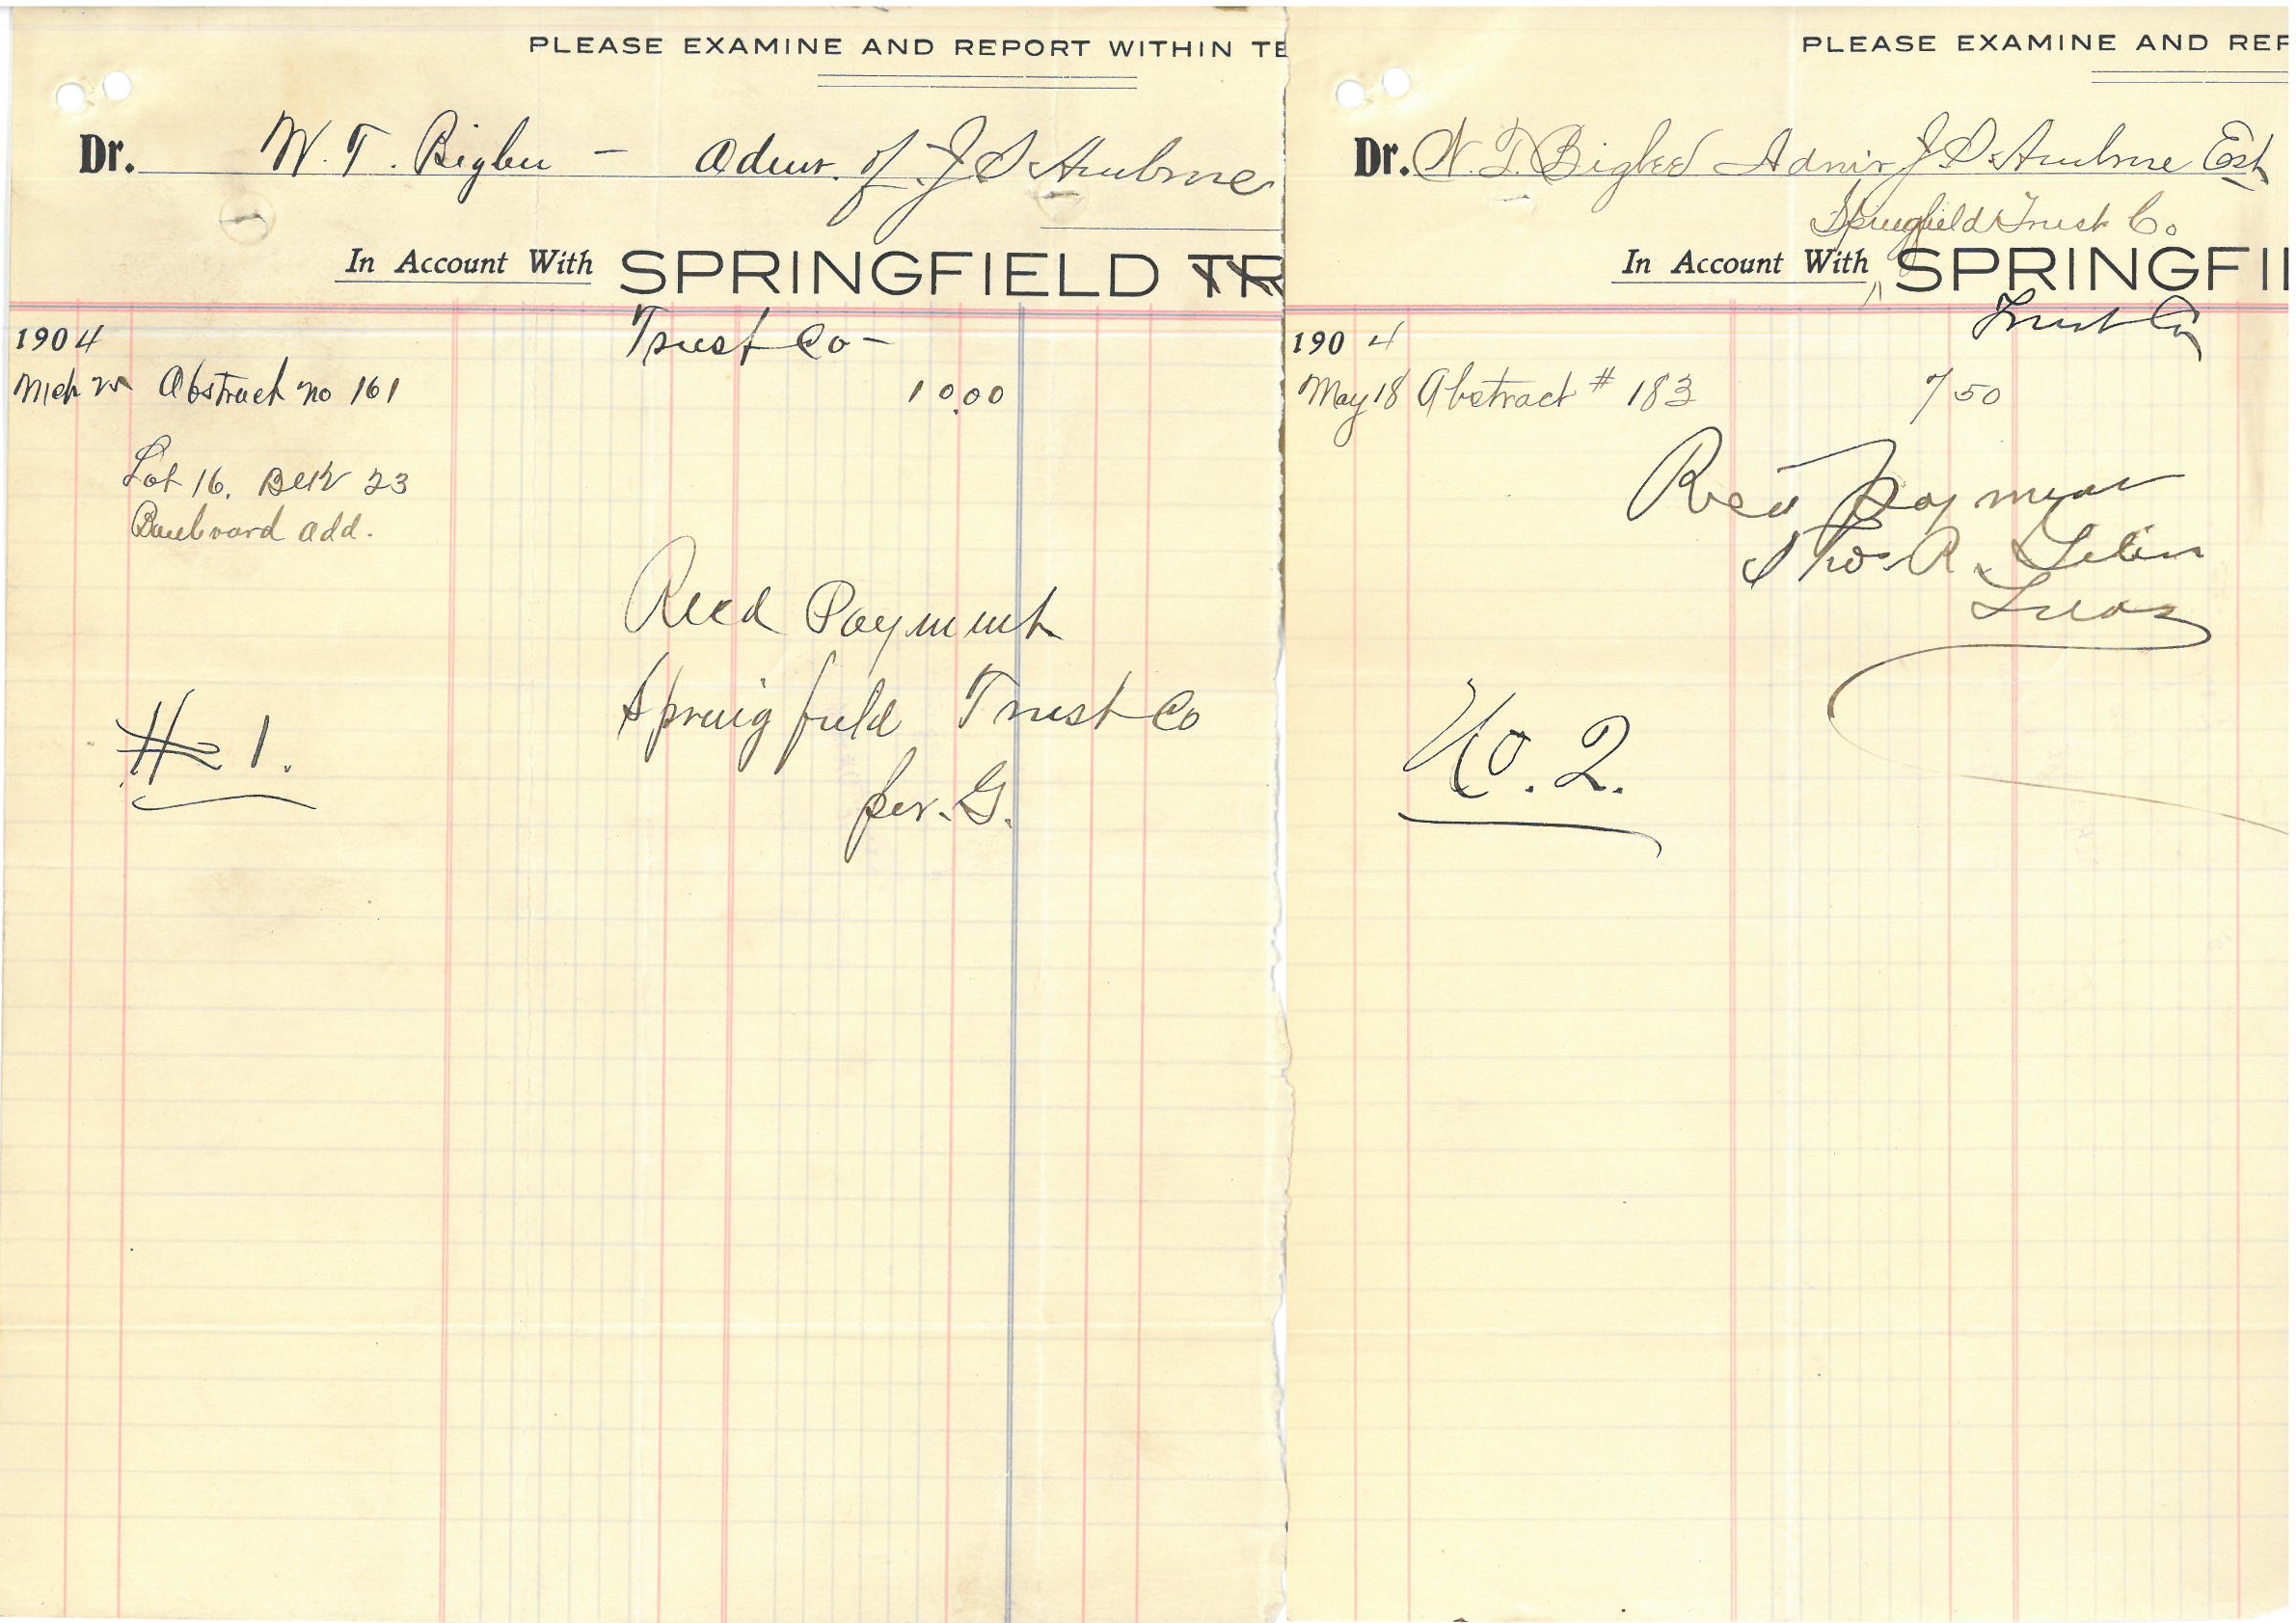 PLEASE EXAMINE AND REPORT WITHIN TE
Dr. W. T. Bigbee – Admr. of J S Ambrose
In Account With SPRINGFIELD TR
Trust Co –
1904
Mch Abstract no 161 10.00
Lot 16. Blk 23
Boulevard add.
Recd Payment
Springfield Trust Co
per. G.
# 1.
PLEASE EXAMINE AND REP
Dr. W. T. Bigbee Admir J S Ambrose Est
Springfield Trust Co
In Account With SPRINGFI
Trust Co
1904
May 18 Abstract # 183 7 50
Recd Payment
Thos. R.
Treas
No. 2.